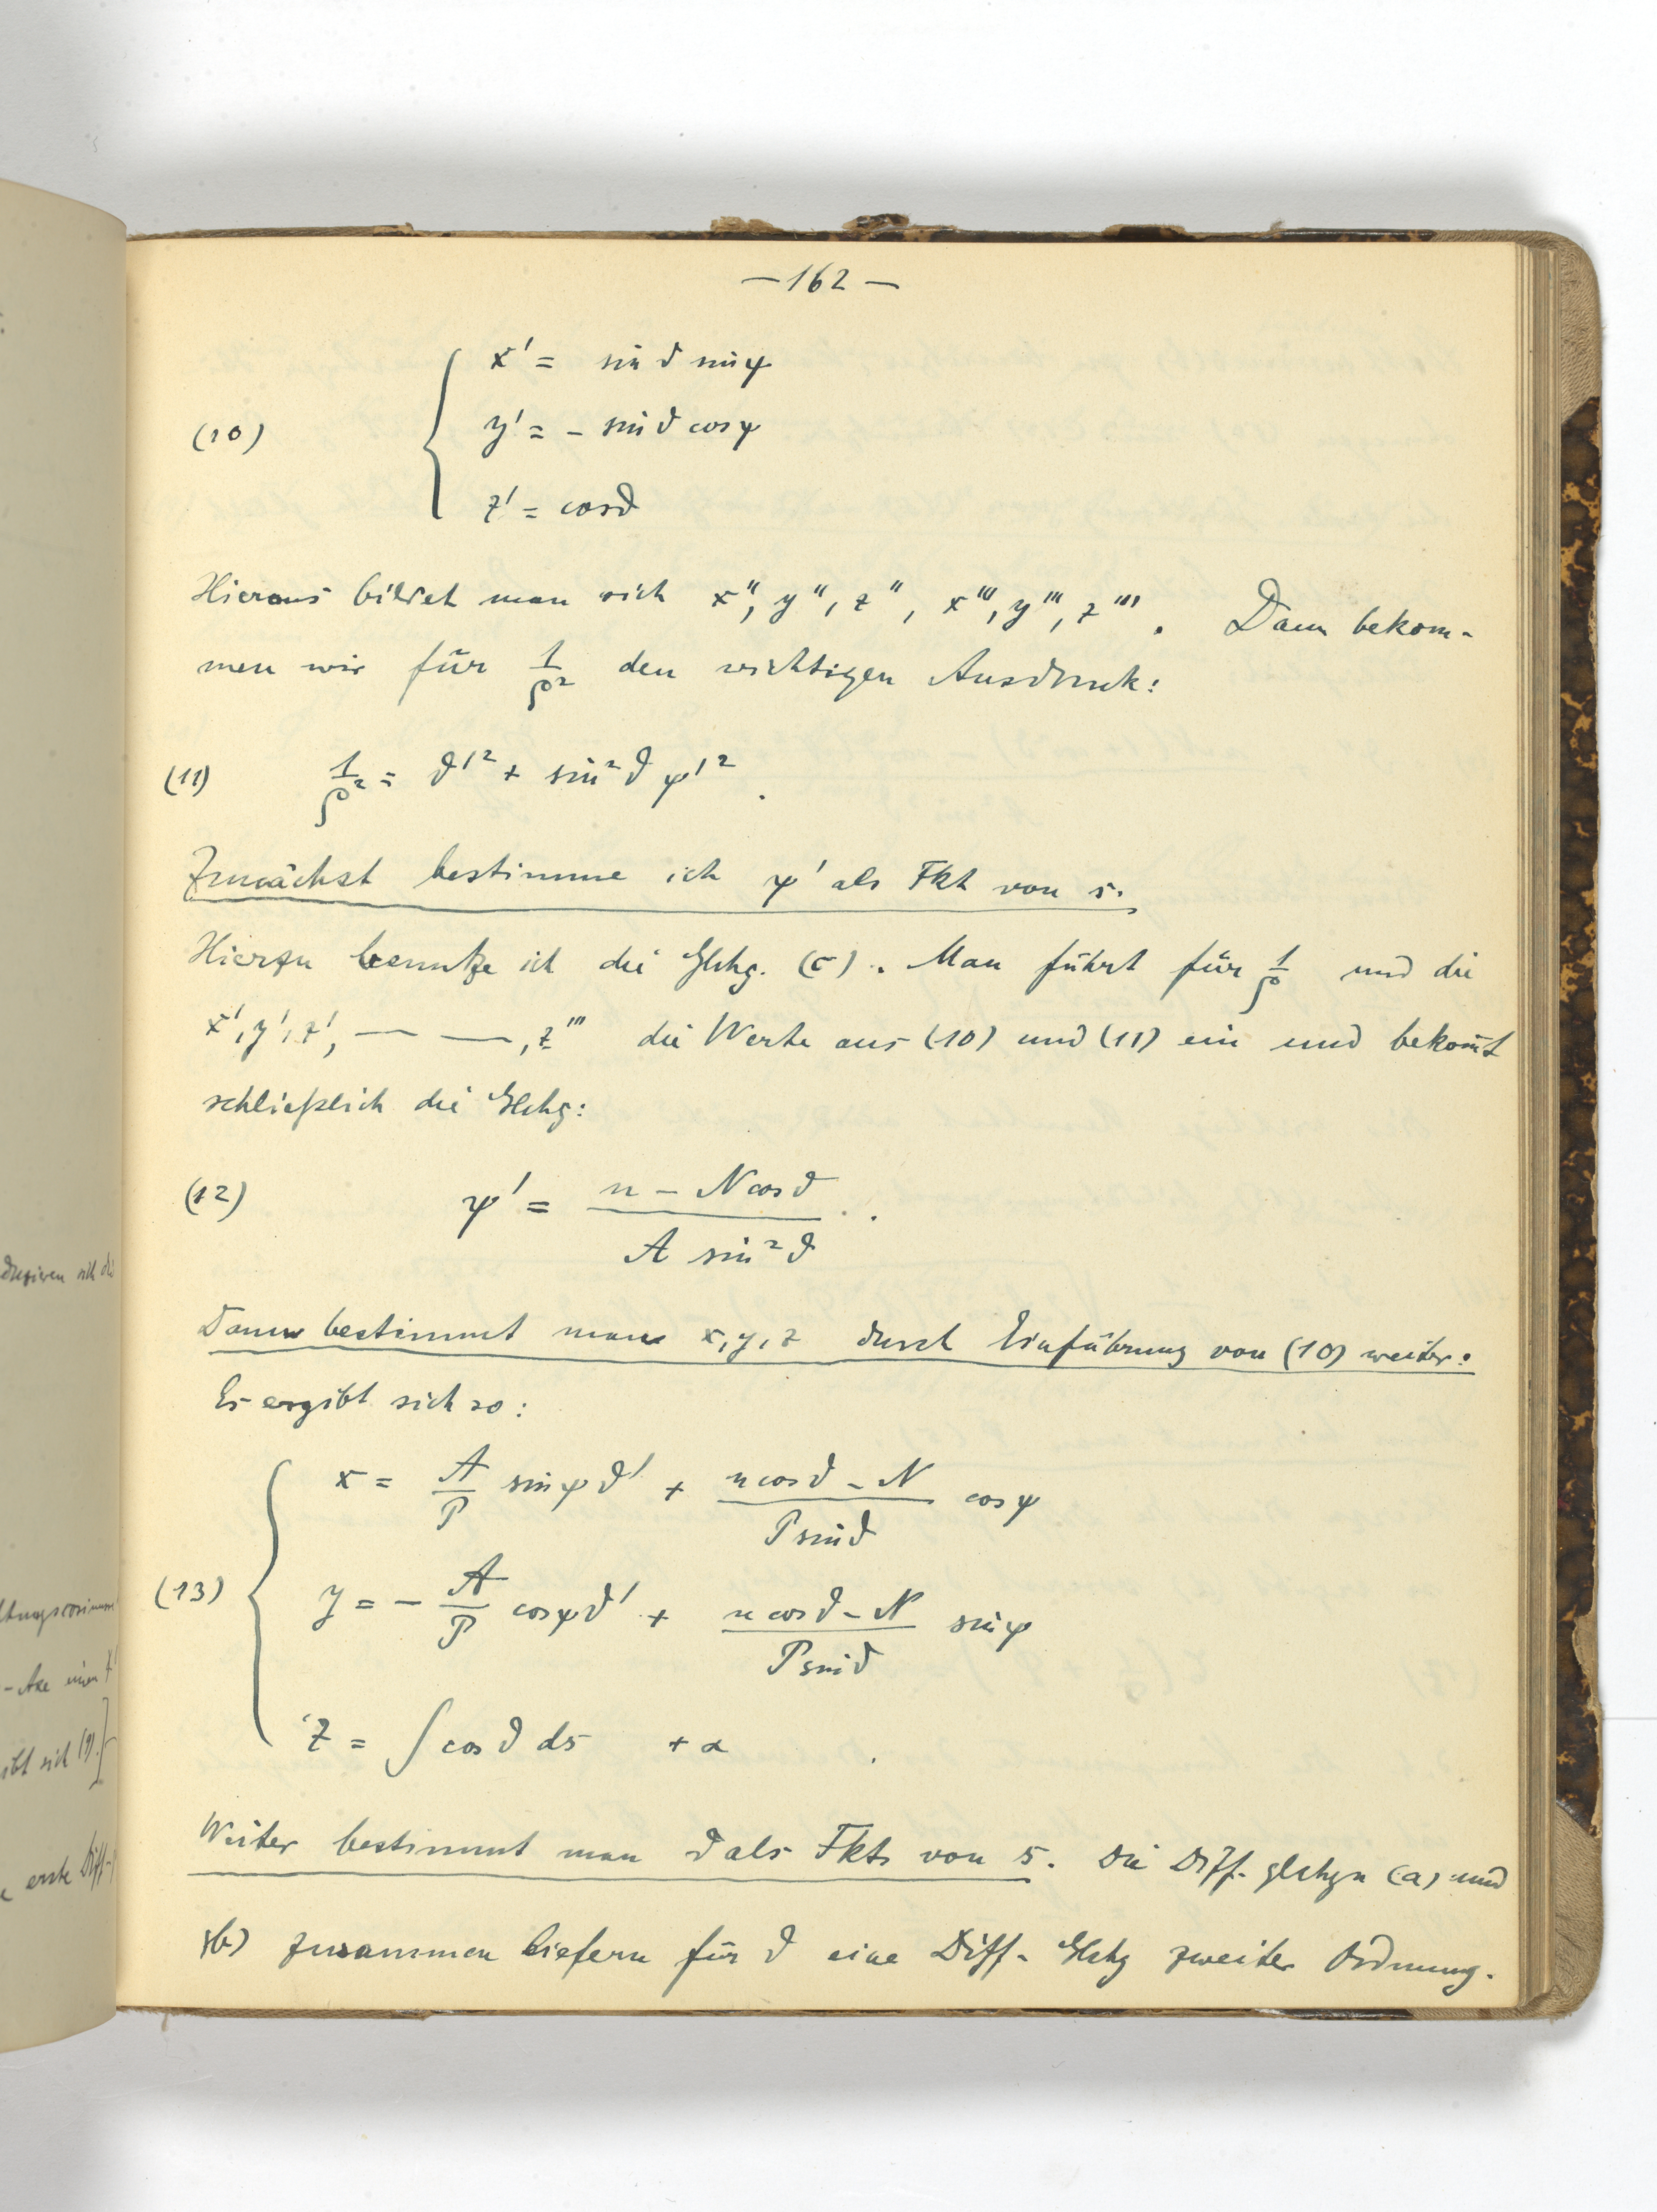 — 162 —
x' = sin ϑ sin ψ
(10) y' = - sin ϑ cos ψ
z' = cos ϑ
Hieraus bildet man sich x'', y'', z'', x''', y''', z'''. Dann bekom-
men wir für 1/ρ² den wichtigen Ausdruck:
(11) 1/ρ² = ϑ'² + sin² ϑ ψ'².
Zunächst bestimme ich ψ' als Fkt von s.
Hierzu benutze ich die Glchg. (c). Man führt für 1/ρ und die
x', y', z', — —, z''' die Werte aus (10) und (11) ein und bekom̄t
schließlich die Glchg:
(12) ψ' = (n - N cos ϑ) / (A sin² ϑ).
Dann bestimmt man x, y, z durch Einführung von (10) weiter:
Es ergibt sich so:
x = A/P sin ψ ϑ' + (n cos ϑ - N) / (P sin ϑ) cos ψ
(13) y = - A/P cos ψ ϑ' + (n cos ϑ - N) / (P sin ϑ) sin ψ
z = ∫ cos ϑ ds + α.
Weiter bestimmt man ϑ als Fkt von s. Die Diff. glchgn (a) und
(b) zusammen liefern für ϑ eine Diff- Glchg zweiter Ordnung.
sich die
-Axe einer
ibt sich (9).]
erste Diff-